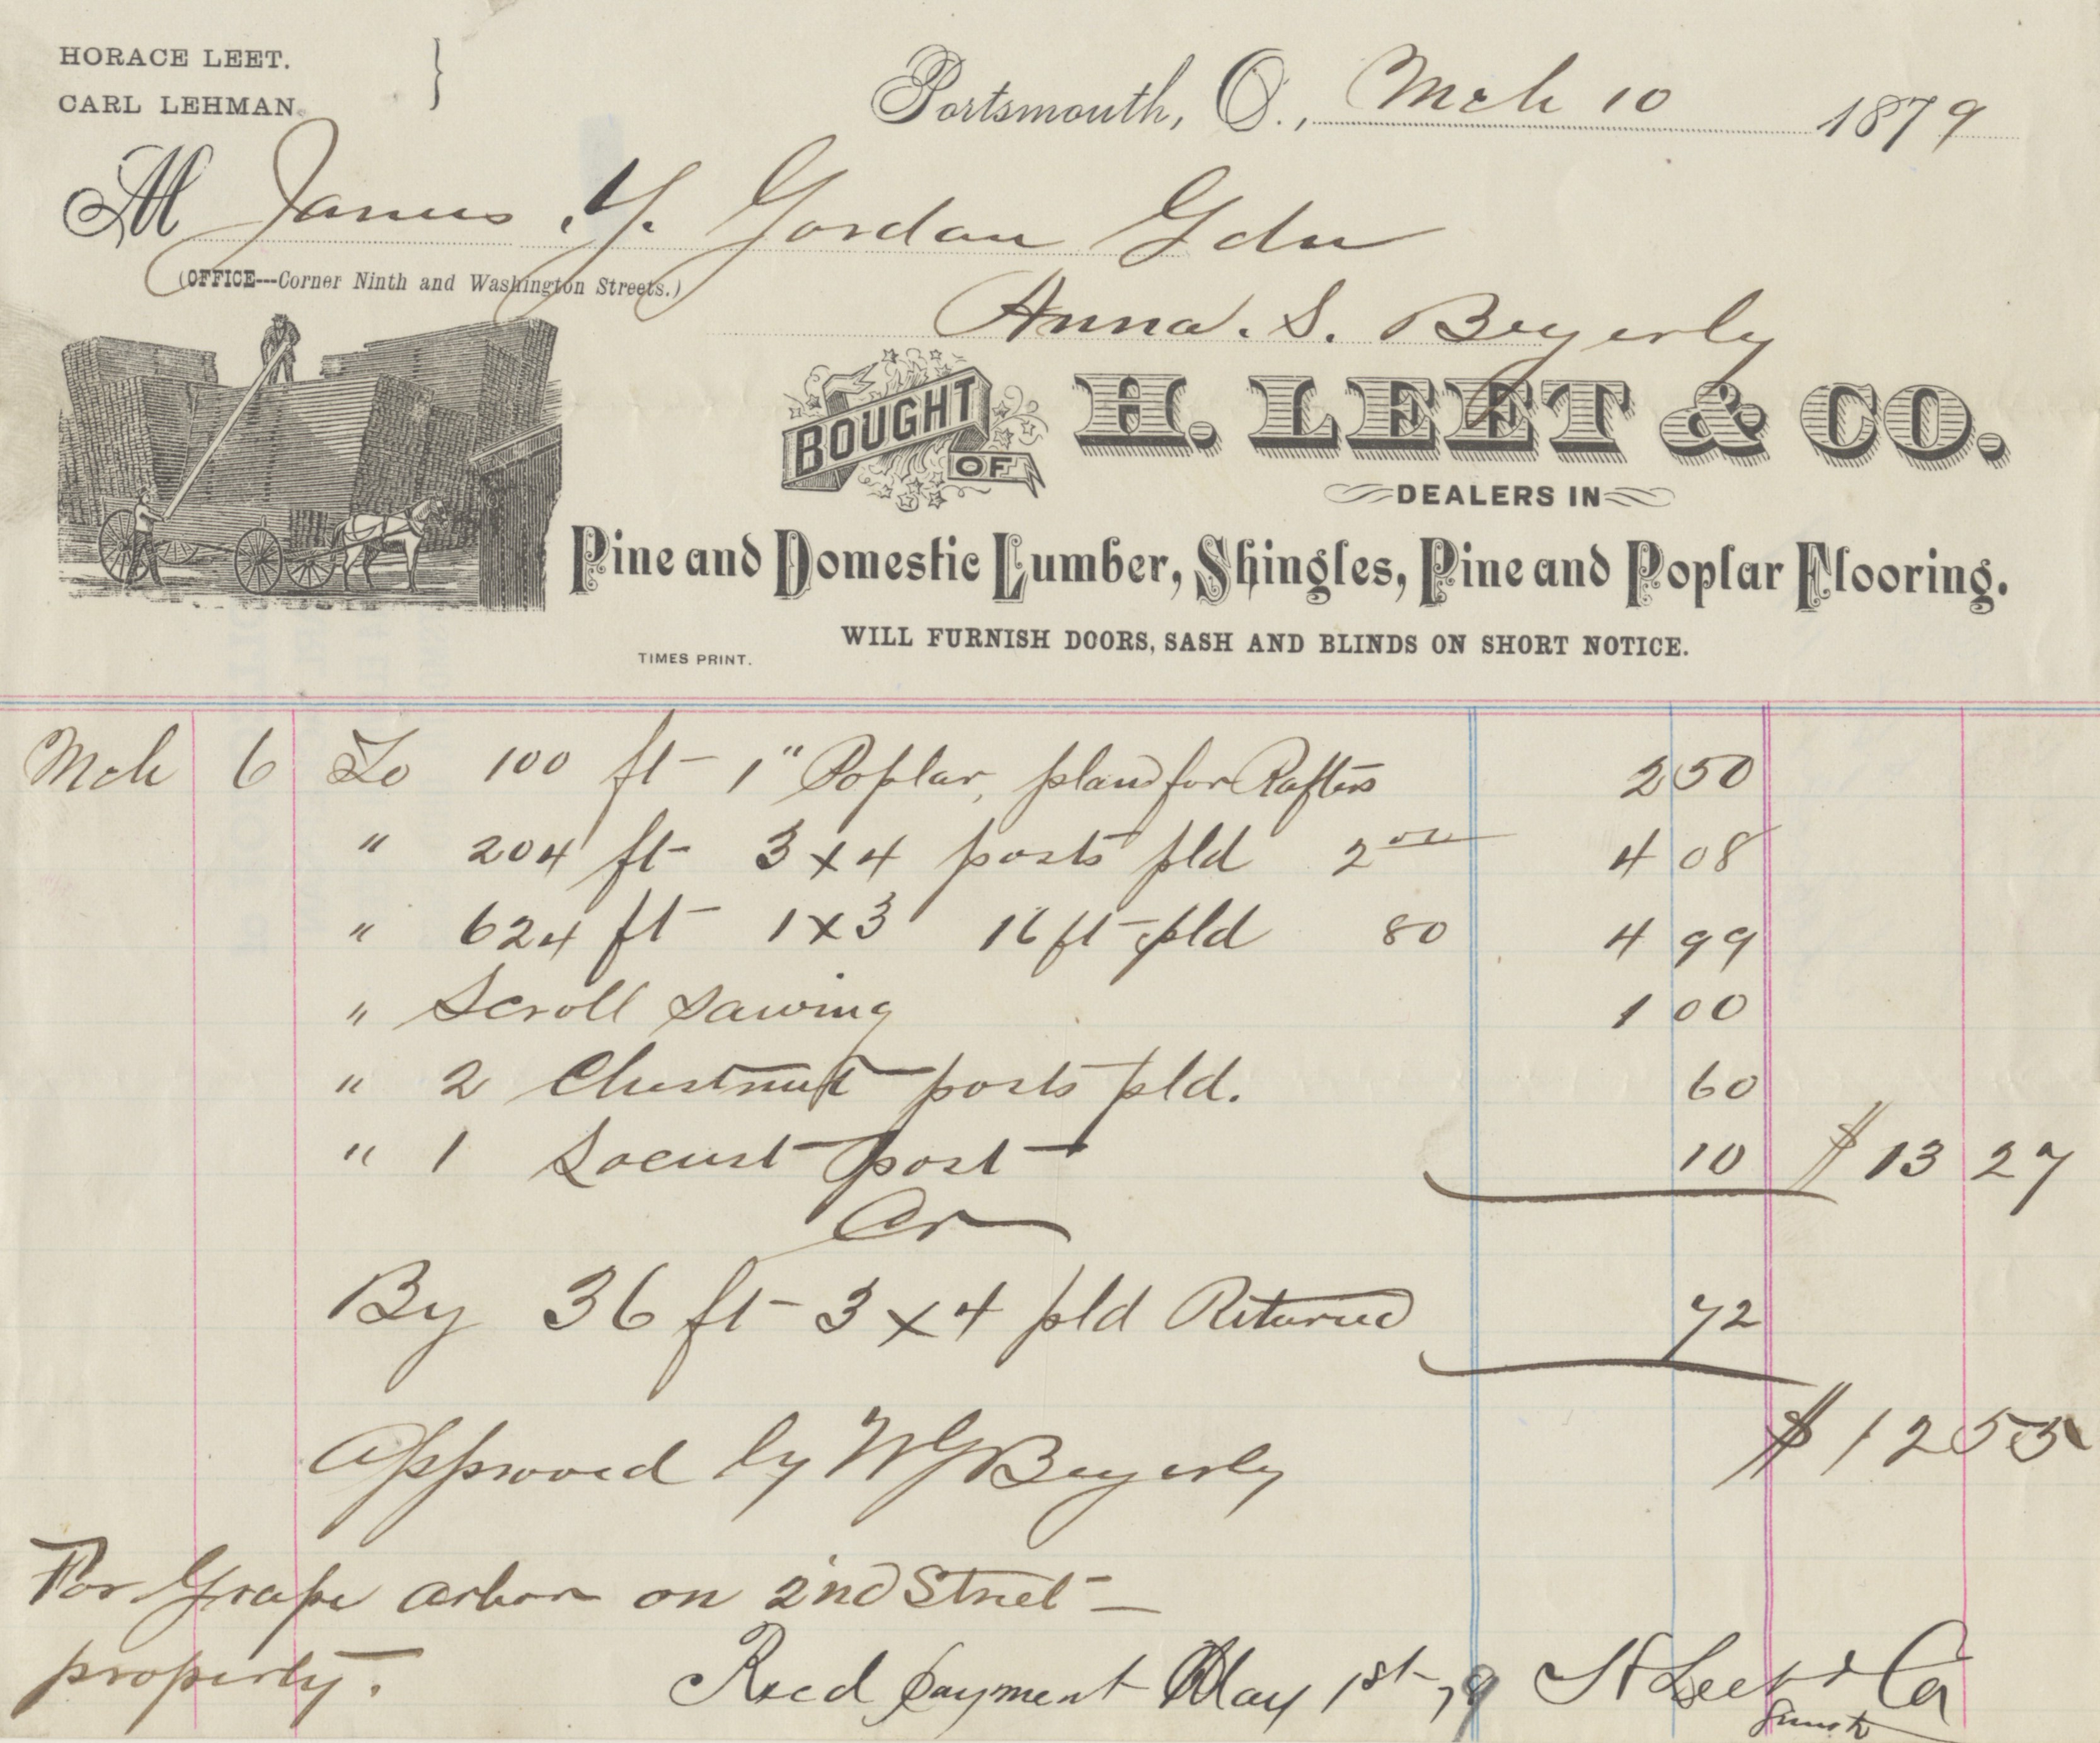 HORACE LEET.
CARL LEHMAN.
Portsmouth, O., Mch 10 1879
M James Y. Gordan Gdn
(OFFICE---Corner Ninth and Washington Streets.)
Anna. S. Beyerly
BOUGHT OF H. LEET & CO.
DEALERS IN
Pine and Domestic Lumber, Shingles, Pine and Poplar Flooring.
WILL FURNISH DOORS, SASH AND BLINDS ON SHORT NOTICE.
TIMES PRINT.
Mch 6 To 100 ft 1" Poplar, pland for Rafters 2 50
" 204 ft 3 x 4 posts pld 2 4 08
" 624 ft 1 x 3 16 ft pld 80 4 99
" Scroll sawing 1 00
" 2 Chestnut posts pld. 60
" 1 Locust post 10 $ 13 27
Cr
By 36 ft 3 x 4 pld Returned 72
$ 12 55
Approved by W G Beyerly
For Grape arbor on 2nd Street
property.
Recd payment May 1st 79 H Leet & Co